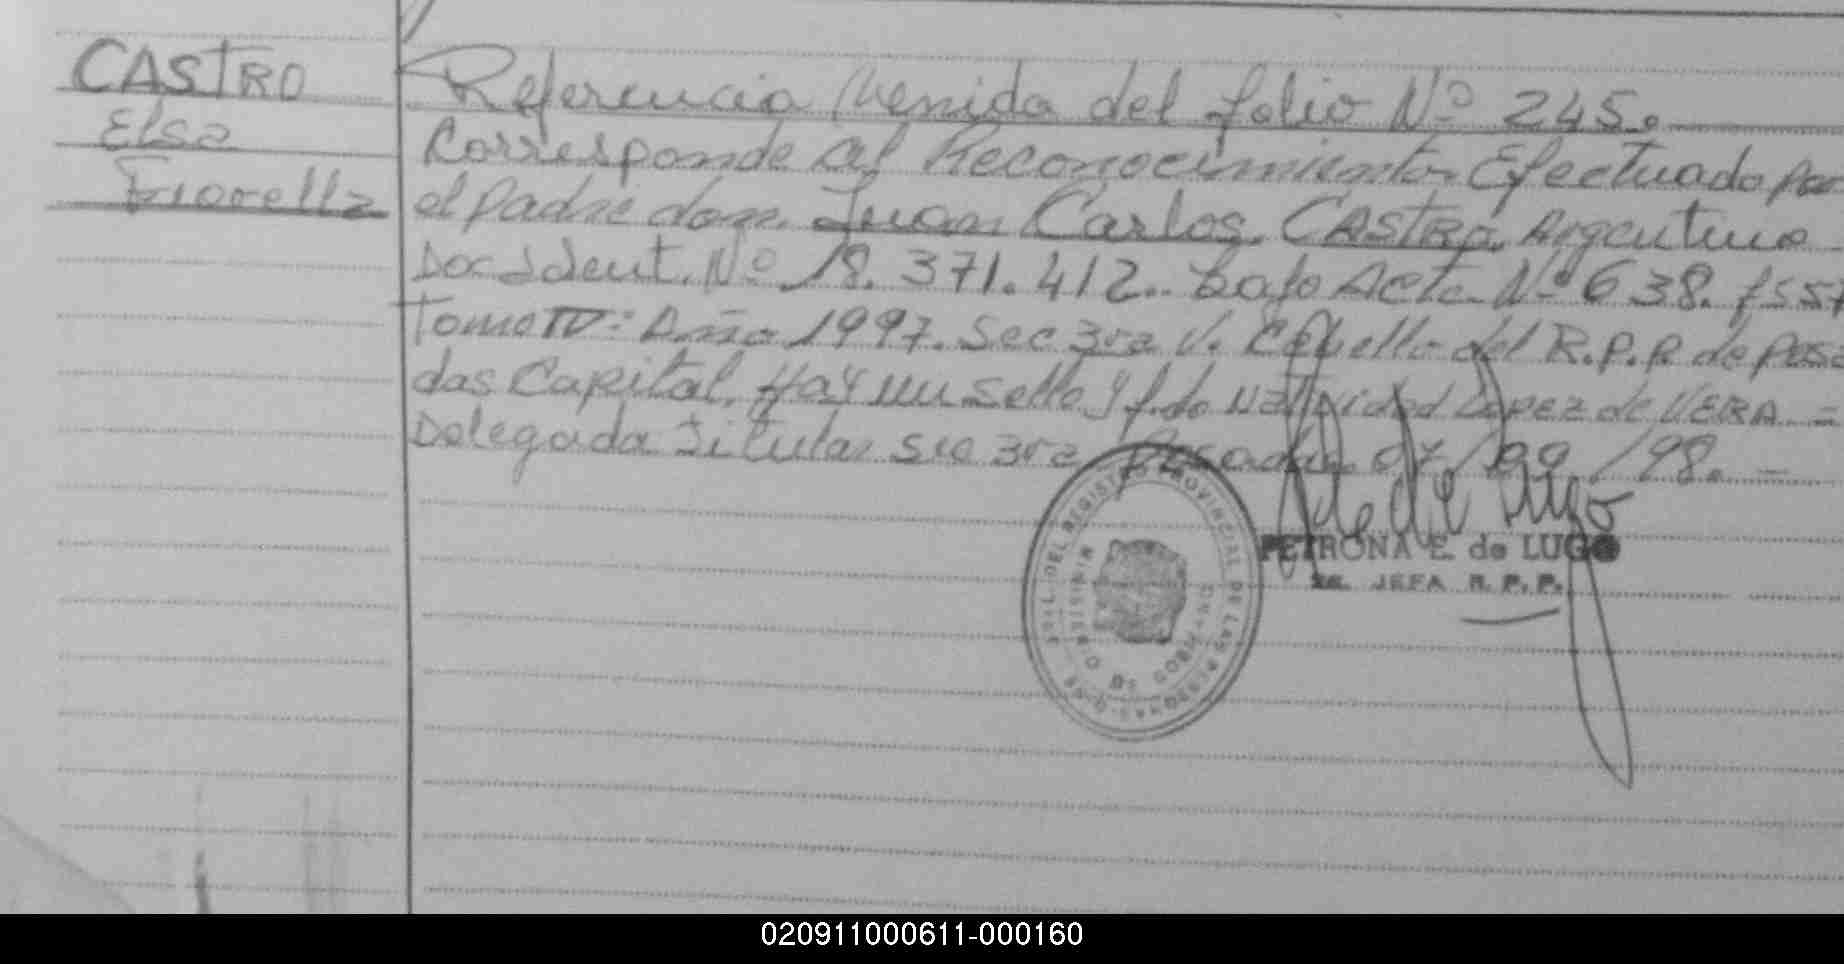 CASTRO
Elsa
Fiorella
Referencia Venida del folio Nº 245.
Corresponde al Reconocimiento Efectuado por
el Padre don Juan Carlos CASTRO, Argentino
Doc Ident. Nº 18.371.412.. bajo Acta Nº 638. fs 57
Tomo IV: Año 1997. Sec 3ra V. Cabello del R.P.P de Posa
das Capital. Hay un sello y f.do Natividad Lopez de VERA =
Delegada Titular Sec 3ra Posadas 07/09/98. -
PETRONA E. de LUGO
JEFA R.P.P.
DEL REGISTRO PROVINCIAL DE LAS PERSONAS
MINISTERIO DE GOBIERNO
020911000611-000160